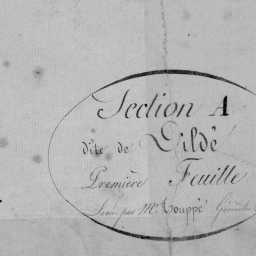 Section A
dite de Lildé
Première Feuille
Levée par Mr. Touppé Géomètre